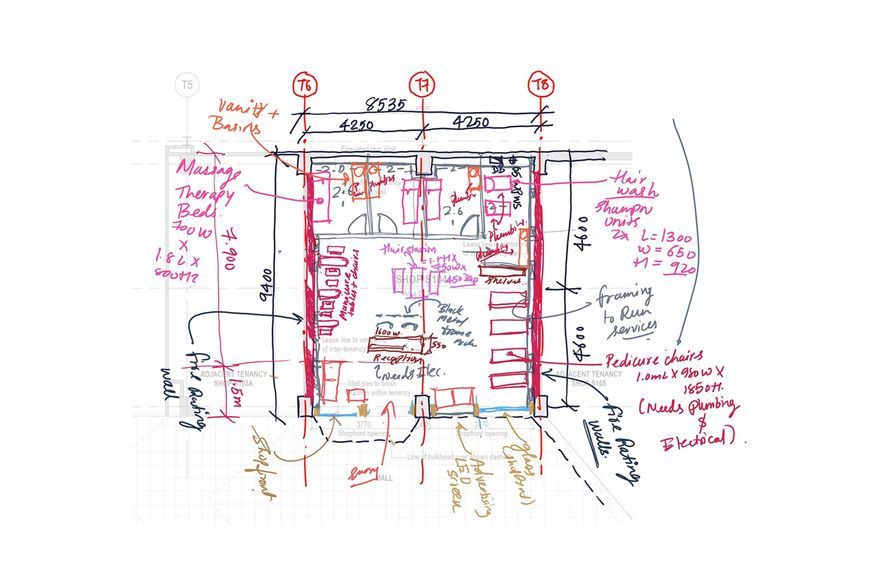 T5
T6
T7
T8
8535
4250
4250
Vanity +
Basins
Massage
Therapy
Beds.
700W
X
1.8L X
7.900
9400
1.5m
Fire Rating
wall
2.0
2.6
Hair
wash
Shampoo
Units
2x L=1300
W = 650
H = 920
4600
4600
Shelves
Hair station
SHOP S104
Manicure
tables + chairs
Black
Metal
frame
framing
to Run
services
Lease line to
of inter-tenancy
1600W
550
Reception
Needs Elec.
Pedicure chairs
1.0mL X 980W X
1850H.
(Needs plumbing
&
Electrical).
ADJACENT TENANCY
SHOP S103A
ADJACENT TENANCY
SHOP S105
Mall tiles to finish
within tenancy
3770
Shopfront opening
3770
Shopfront opening
Line of bulkhead over shown dashed
MALL
Shopfront
entry
Advertising
LED
screen
glass
Fire Rating
walls.